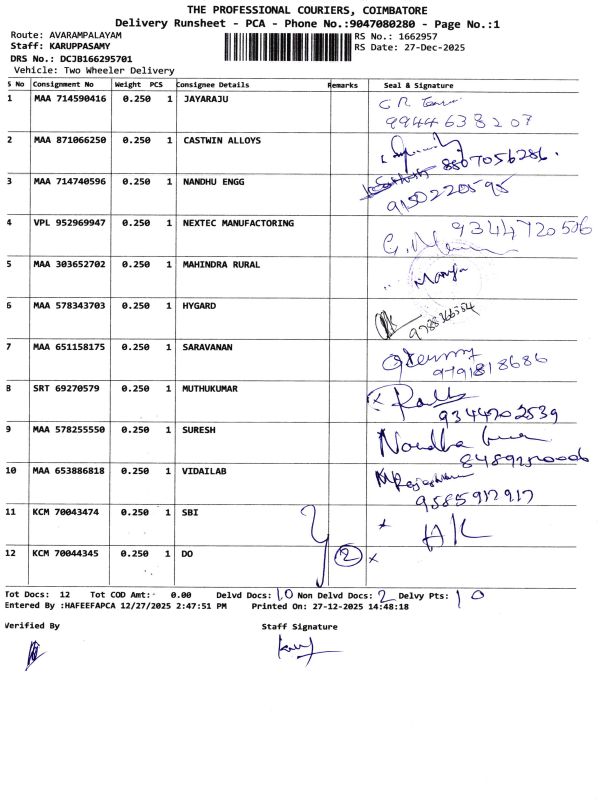 THE PROFESSIONAL COURIERS, COIMBATORE
Delivery Runsheet - PCA - Phone No.:9047080280 - Page No.:1
Route: AVARAMPALAYAM
RS No.: 1662957
Staff: KARUPPASAMY
RS Date: 27-Dec-2025
DRS No.: DCJB166295701
Vehicle: Two Wheeler Delivery
S No Consignment No Weight PCS Consignee Details Remarks Seal & Signature
1 MAA 714590416 0.250 1 JAYARAJU
9944638207
2 MAA 871066250 0.250 1 CASTWIN ALLOYS
8807056286.
3 MAA 714740596 0.250 1 NANDHU ENGG
9150220595
4 VPL 952969947 0.250 1 NEXTEC MANUFACTORING 9344720506
5 MAA 303652702 0.250 1 MAHINDRA RURAL
6 MAA 578343703 0.250 1 HYGARD
9788366384
7 MAA 651158175 0.250 1 SARAVANAN
9791818686
8 SRT 69270579 0.250 1 MUTHUKUMAR
9344202539
9 MAA 578255550 0.250 1 SURESH
10 MAA 653886818 0.250 1 VIDAILAB
9585917917
11 KCM 70043474 0.250 1 SBI
12 KCM 70044345 0.250 1 DO 2 x
Tot Docs: 12 Tot COD Amt: 0.00 Delvd Docs: 10 Non Delvd Docs: 2 Delvy Pts: 10
Entered By :HAFEEFAPCA 12/27/2025 2:47:51 PM Printed On: 27-12-2025 14:48:18
Verified By Staff Signature